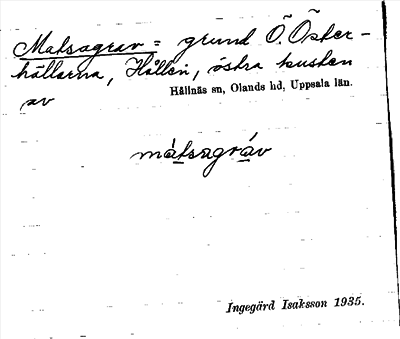 Matsograv = grund Ö. Öster-
hällarna, Hållen, östra kusten
av Hållnäs sn, Olands hd, Uppsala län.
mátsagráv
Ingegärd Isaksson 1935.